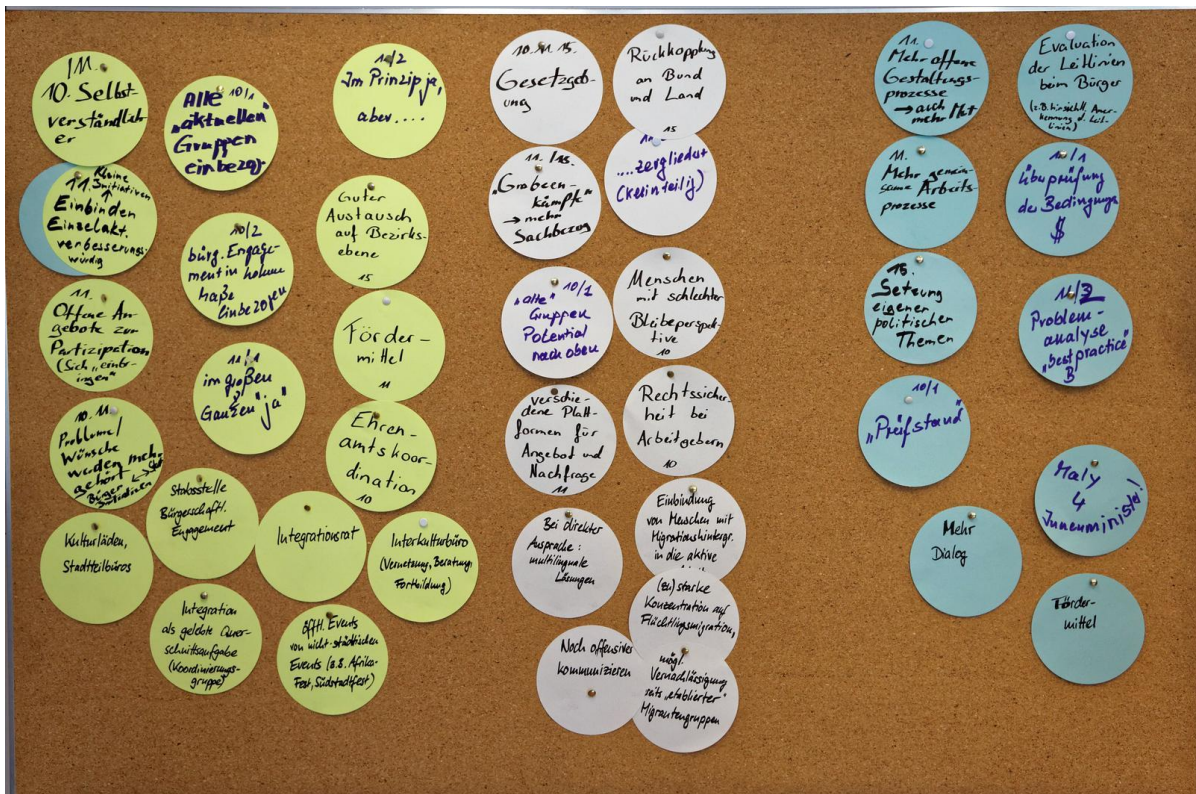 /11.
10. Selbst
verständlich
er
Alle 10/1
"aktuellen"
Gruppen
einbezog.
11/2
Im Prinzip ja,
aber....
Kleine
Initiativen
11. ↑
Einbinden
Einzelakt.
verbesserungs-
würdig
10/2
bürg. Engage-
ment in hohem
Maße
einbezogen
Guter
Austausch
auf Bezirks-
ebene
15
11.
Offene An-
gebote zur
Partizipation
(Sich "einbr-
ingen"
11/1
im großen
Ganzen "ja"
Förder-
mittel
11
10. 11.
Probleme/
Wünsche
werden mehr
gehört
Bürger
Ehren-
amtskoor-
dination
10
Stabsstelle
Bürgerschaftl.
Engagement
Kulturläden,
Stadtteilbüros
Integrationsrat
Interkulturbüro
(Vernetzung, Beratung,
Fortbildung)
Integration
als gelebte Quer-
schnittsaufgabe
(Koordinierungs-
gruppe)
Öfftl. Events
von nicht-städtischen
Events (z.B. Afrika-
Fest, Südstadtfest)
10. 11. 15.
Gesetzgeb-
ung
Rückkopplung
an Bund
und Land
15
11. /15.
"Graben-
kämpfe"
→ mehr
Sachbezug
....zergliedert
(kleinteilig)
"alte" 10/1
Gruppen
Potential
nach oben
Menschen
mit schlechter
Bleibeperspek-
tive
10
verschie-
dene Platt-
formen für
Angebot und
Nachfrage
11
Rechtssicher-
heit bei
Arbeitgebern
10
Bei direkter
Ansprache:
multilinguale
Lösungen
Einbindung
von Menschen mit
Migrationshintergr.
in die aktive
(zu) starke
Konzentration auf
Flüchtlingsmigration,
Noch offensiver
kommunizieren
mögl.
Vernachlässigung
seits "etablierter"
Migrantengruppen
11.
Mehr offene
Gestaltungs-
prozesse
→ auch
mehr Mut
Evaluation
der Leitlinien
beim Bürger
(z.B. hinsichtl. Aner-
kennung d. Leit-
linien)
11.
Mehr gemein-
same Arbeits-
prozesse
10/1
Überprüfung
der Bedingungen
$
15.
Setzung
eigener
politischen
Themen
11/3
Problem-
analyse
"best practice"
B
10/1
"Prüfstand"
Maly
4
Innenminister!
Mehr
Dialog
Förder-
mittel